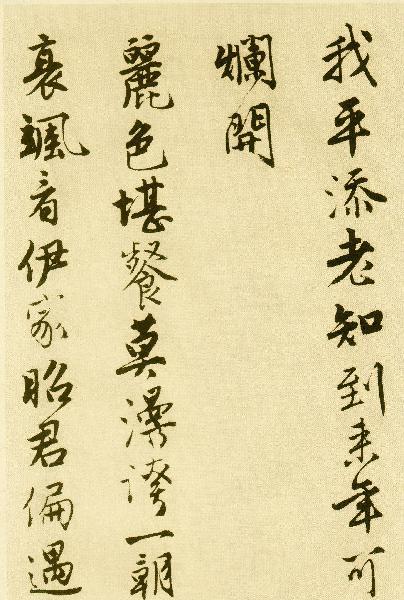 我平添老知到来年可
爛開
麗色堪餐莫漫誇一朝
衰颯看伊家昭君偏遇